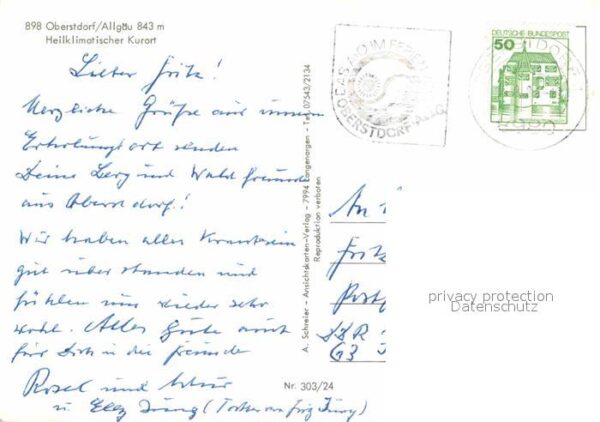 898 Oberstdorf/Allgäu 843 m
Heilklimatischer Kurort
Lieber Fritz!
Herzliche Grüße aus unserem
Erholungsort senden
Deine Berg und Wald freunde
aus Oberstdorf!
Wir haben alles
gut überstanden und
fühlen uns wieder sehr
wohl. Alles Gute auch
für Dich in die Freunde
Rosel und Artur
u. Elly Jung (
Nr. 303/24
A. Schreier - Ansichtskarten-Verlag - 7994 Langenargen - Tel. 07543/2134
Reproduktion verboten
OBERSTDORF
DEUTSCHE BUNDESPOST
50
An
Fritz
Post
DDR
privacy protection
Datenschutz